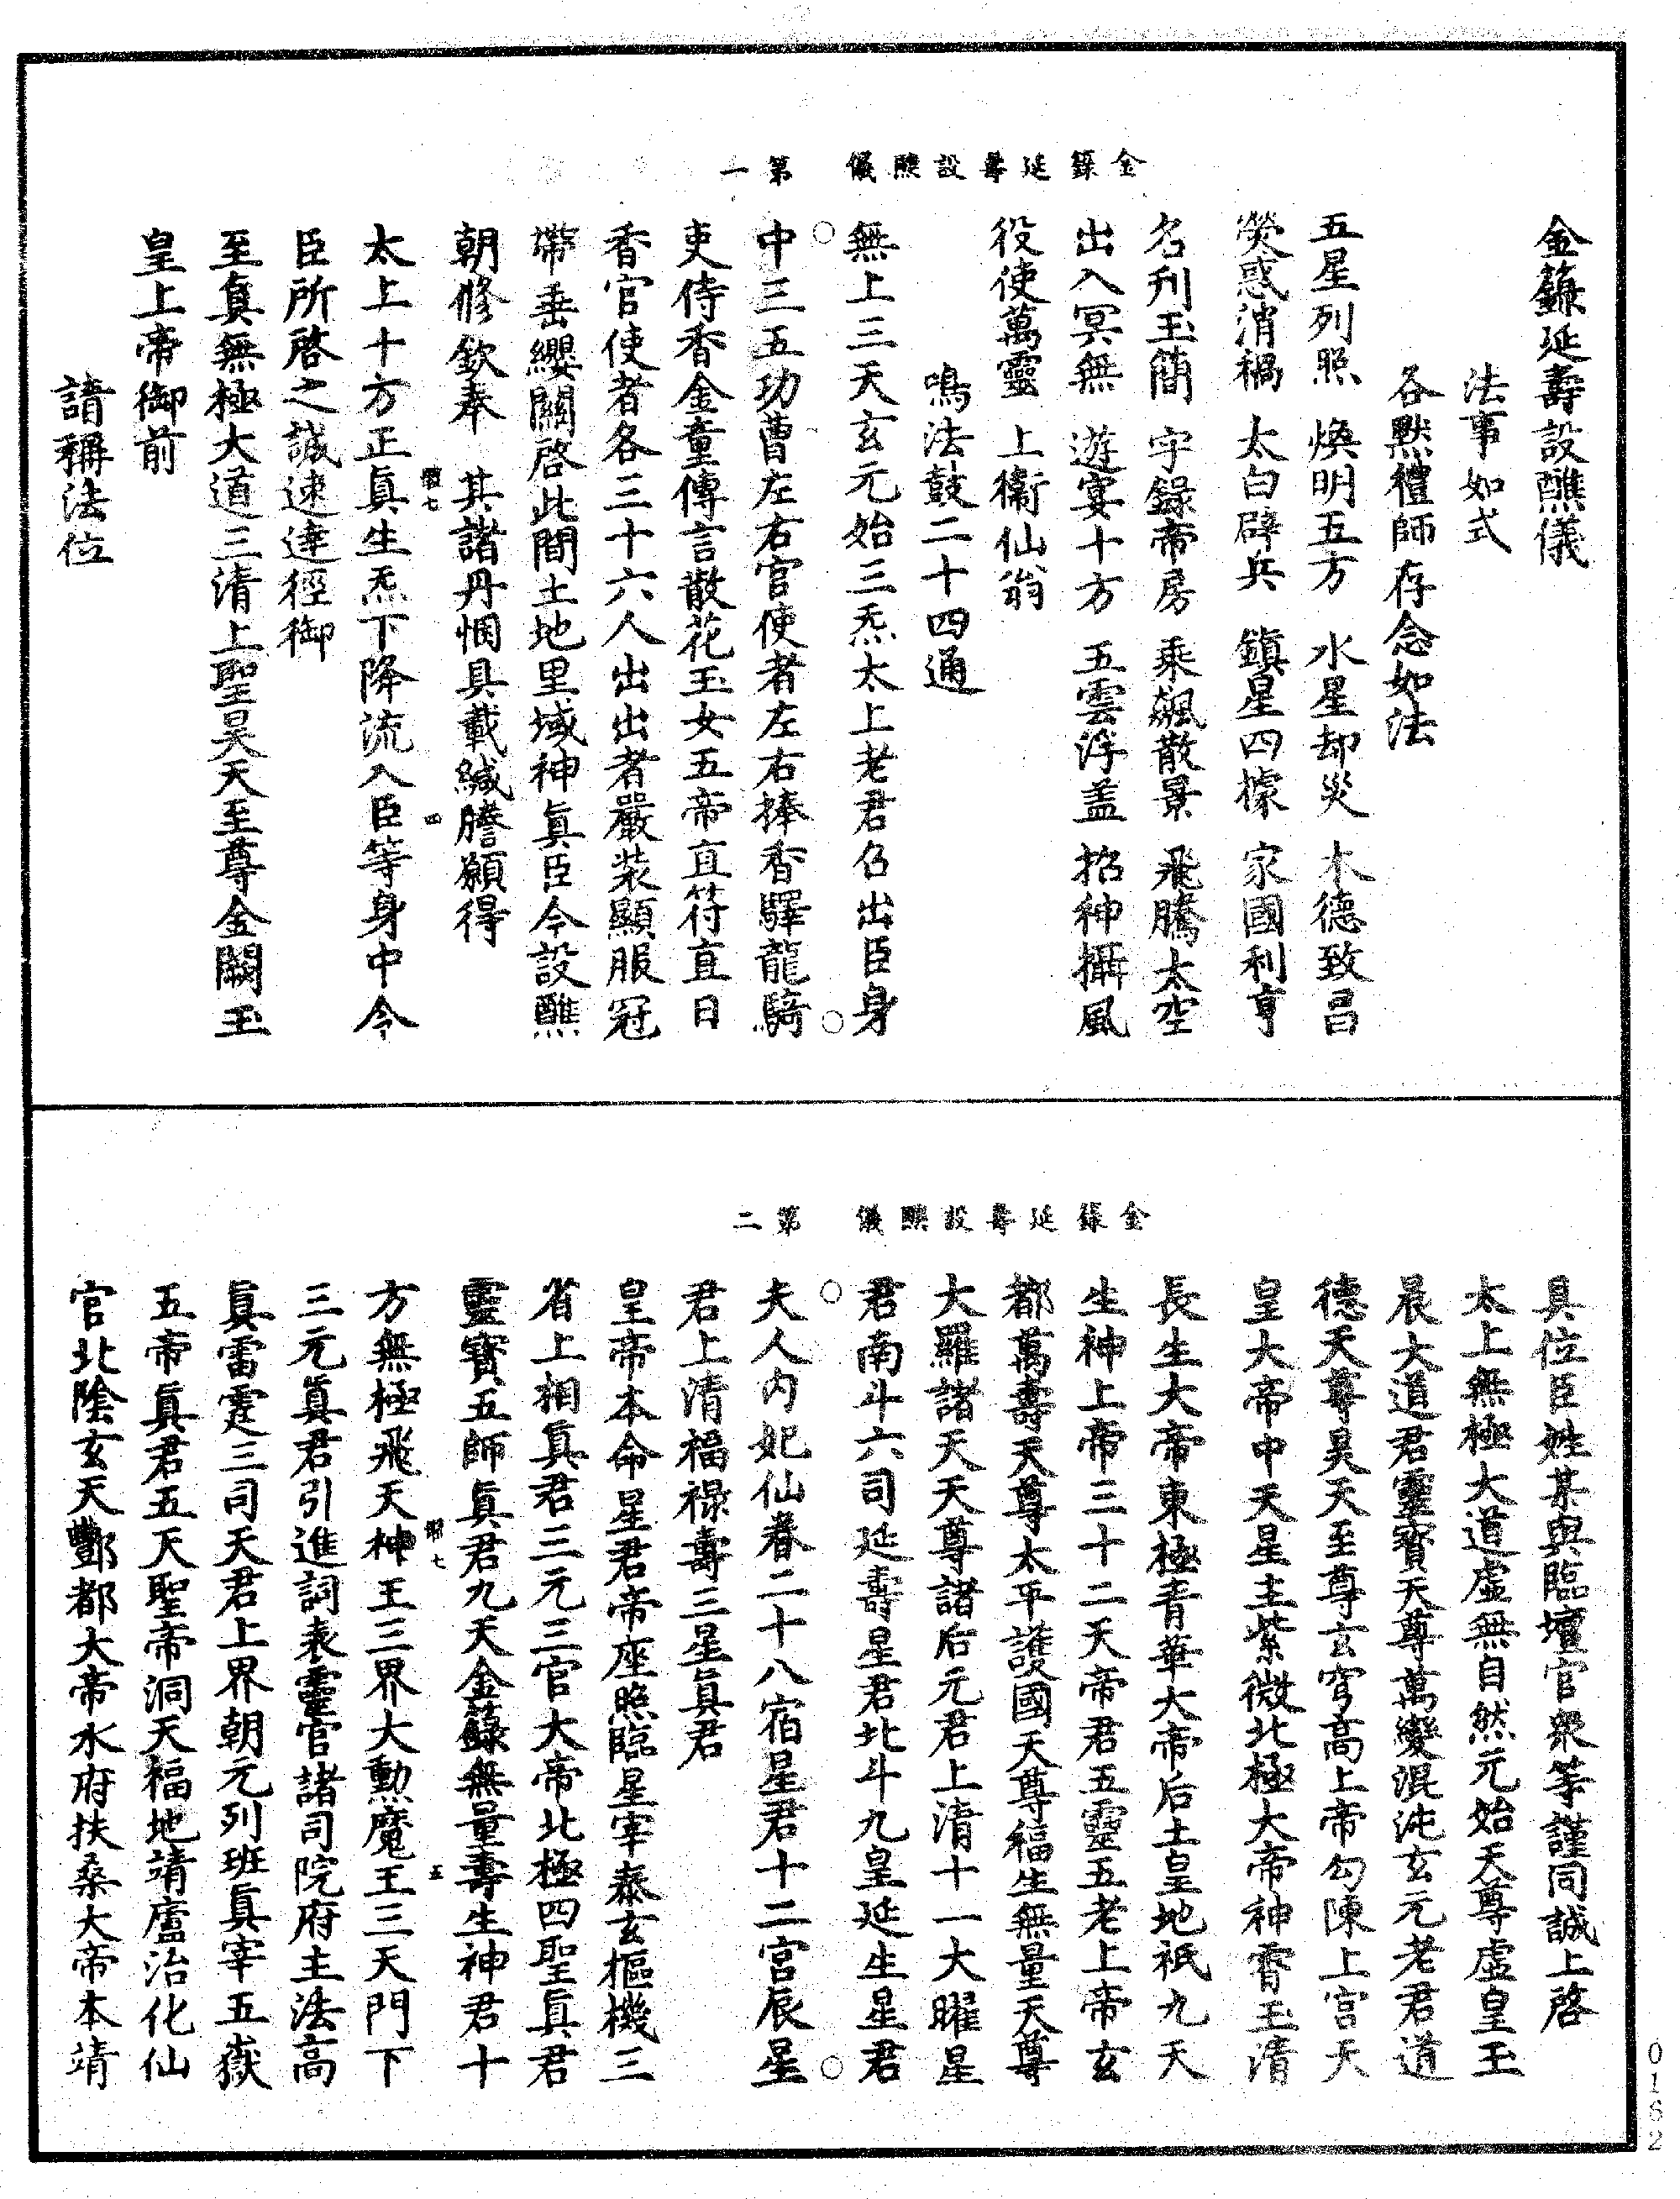 金籙延壽設醮儀
法事如式
各默禮師存念如法
五星列照　煥明五方　水星却災　木德致昌
熒惑消禍　太白辟兵　鎮星四據　家國利亨
名刋玉簡　字錄帝房　乘飆散景　飛騰太空
出入冥無　遊宴十方　五雲浮盖　招神攝風
役使萬靈　上衞仙翁
鳴法鼓二十四通
無上三天玄元始三炁太上老君召出臣身
中三五功曹左右官使者左右捧香驛龍騎
吏侍香金童傳言散花玉女五帝直符直日
香官使者各三十六人出出者嚴裝顯服冠
帶垂纓關啓此間土地里域神眞臣今設醮
朝修欽奉　其諸丹悃具載緘謄願得
太上十方正眞生炁下降流入臣等身中令
臣所啓之誠速達徑御
至眞無極大道三清上聖昊天至尊金闕玉
皇上帝御前
請稱法位
金籙延壽設醮儀　第一
七　四
具位臣姓某與臨壇官衆等謹同誠上啓
太上無極大道虛無自然元始天尊虛皇玉
晨大道君靈寶天尊萬變混沌玄元老君道
德天尊昊天至尊玄穹高上帝勾陳上宮天
皇大帝中天星主紫微北極大帝神霄玉清
長生大帝東極青華大帝后土皇地祇九天
生神上帝三十二天帝君五靈五老上帝玄
都萬壽天尊太平護國天尊福生無量天尊
大羅諸天天尊諸后元君上清十一大曜星
君南斗六司延壽星君北斗九皇延生星君
夫人内妃仙眷二十八宿星君十二宮辰星
君上清福祿壽三星眞君
皇帝本命星君帝座照臨星宰泰玄樞機三
省上相眞君三元三官大帝北極四聖眞君
靈寶五師眞君九天金籙無量壽生神君十
方無極飛天神王三界大勲魔王三天門下
三元眞君引進詞表靈官諸司院府主法高
眞雷霆三司天君上界朝元列班眞宰五嶽
五帝眞君五天聖帝洞天福地靖廬治化仙
官北陰玄天酆都大帝水府扶桑大帝本靖
金籙延壽設醮儀　第二
七　五
0162